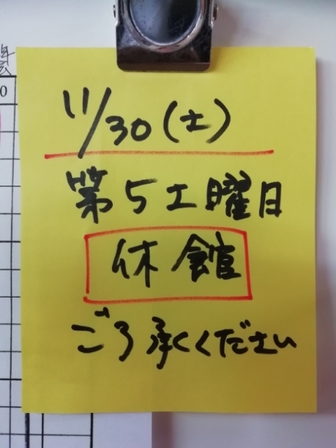 11/30(土)
第5土曜日
休館
ごろ承ください